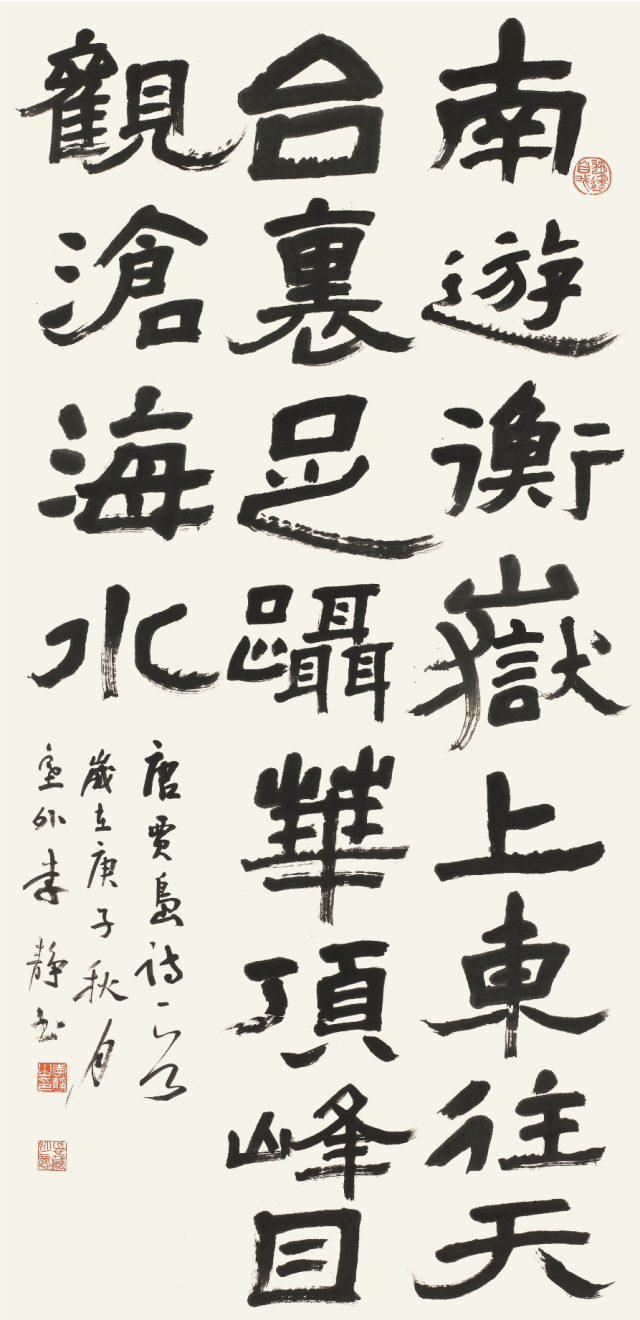 南遊衡嶽上東往天
台裏足躡華頂峰目
觀滄海水
唐賈島詩一首
歲在庚子秋月
塞外李靜书